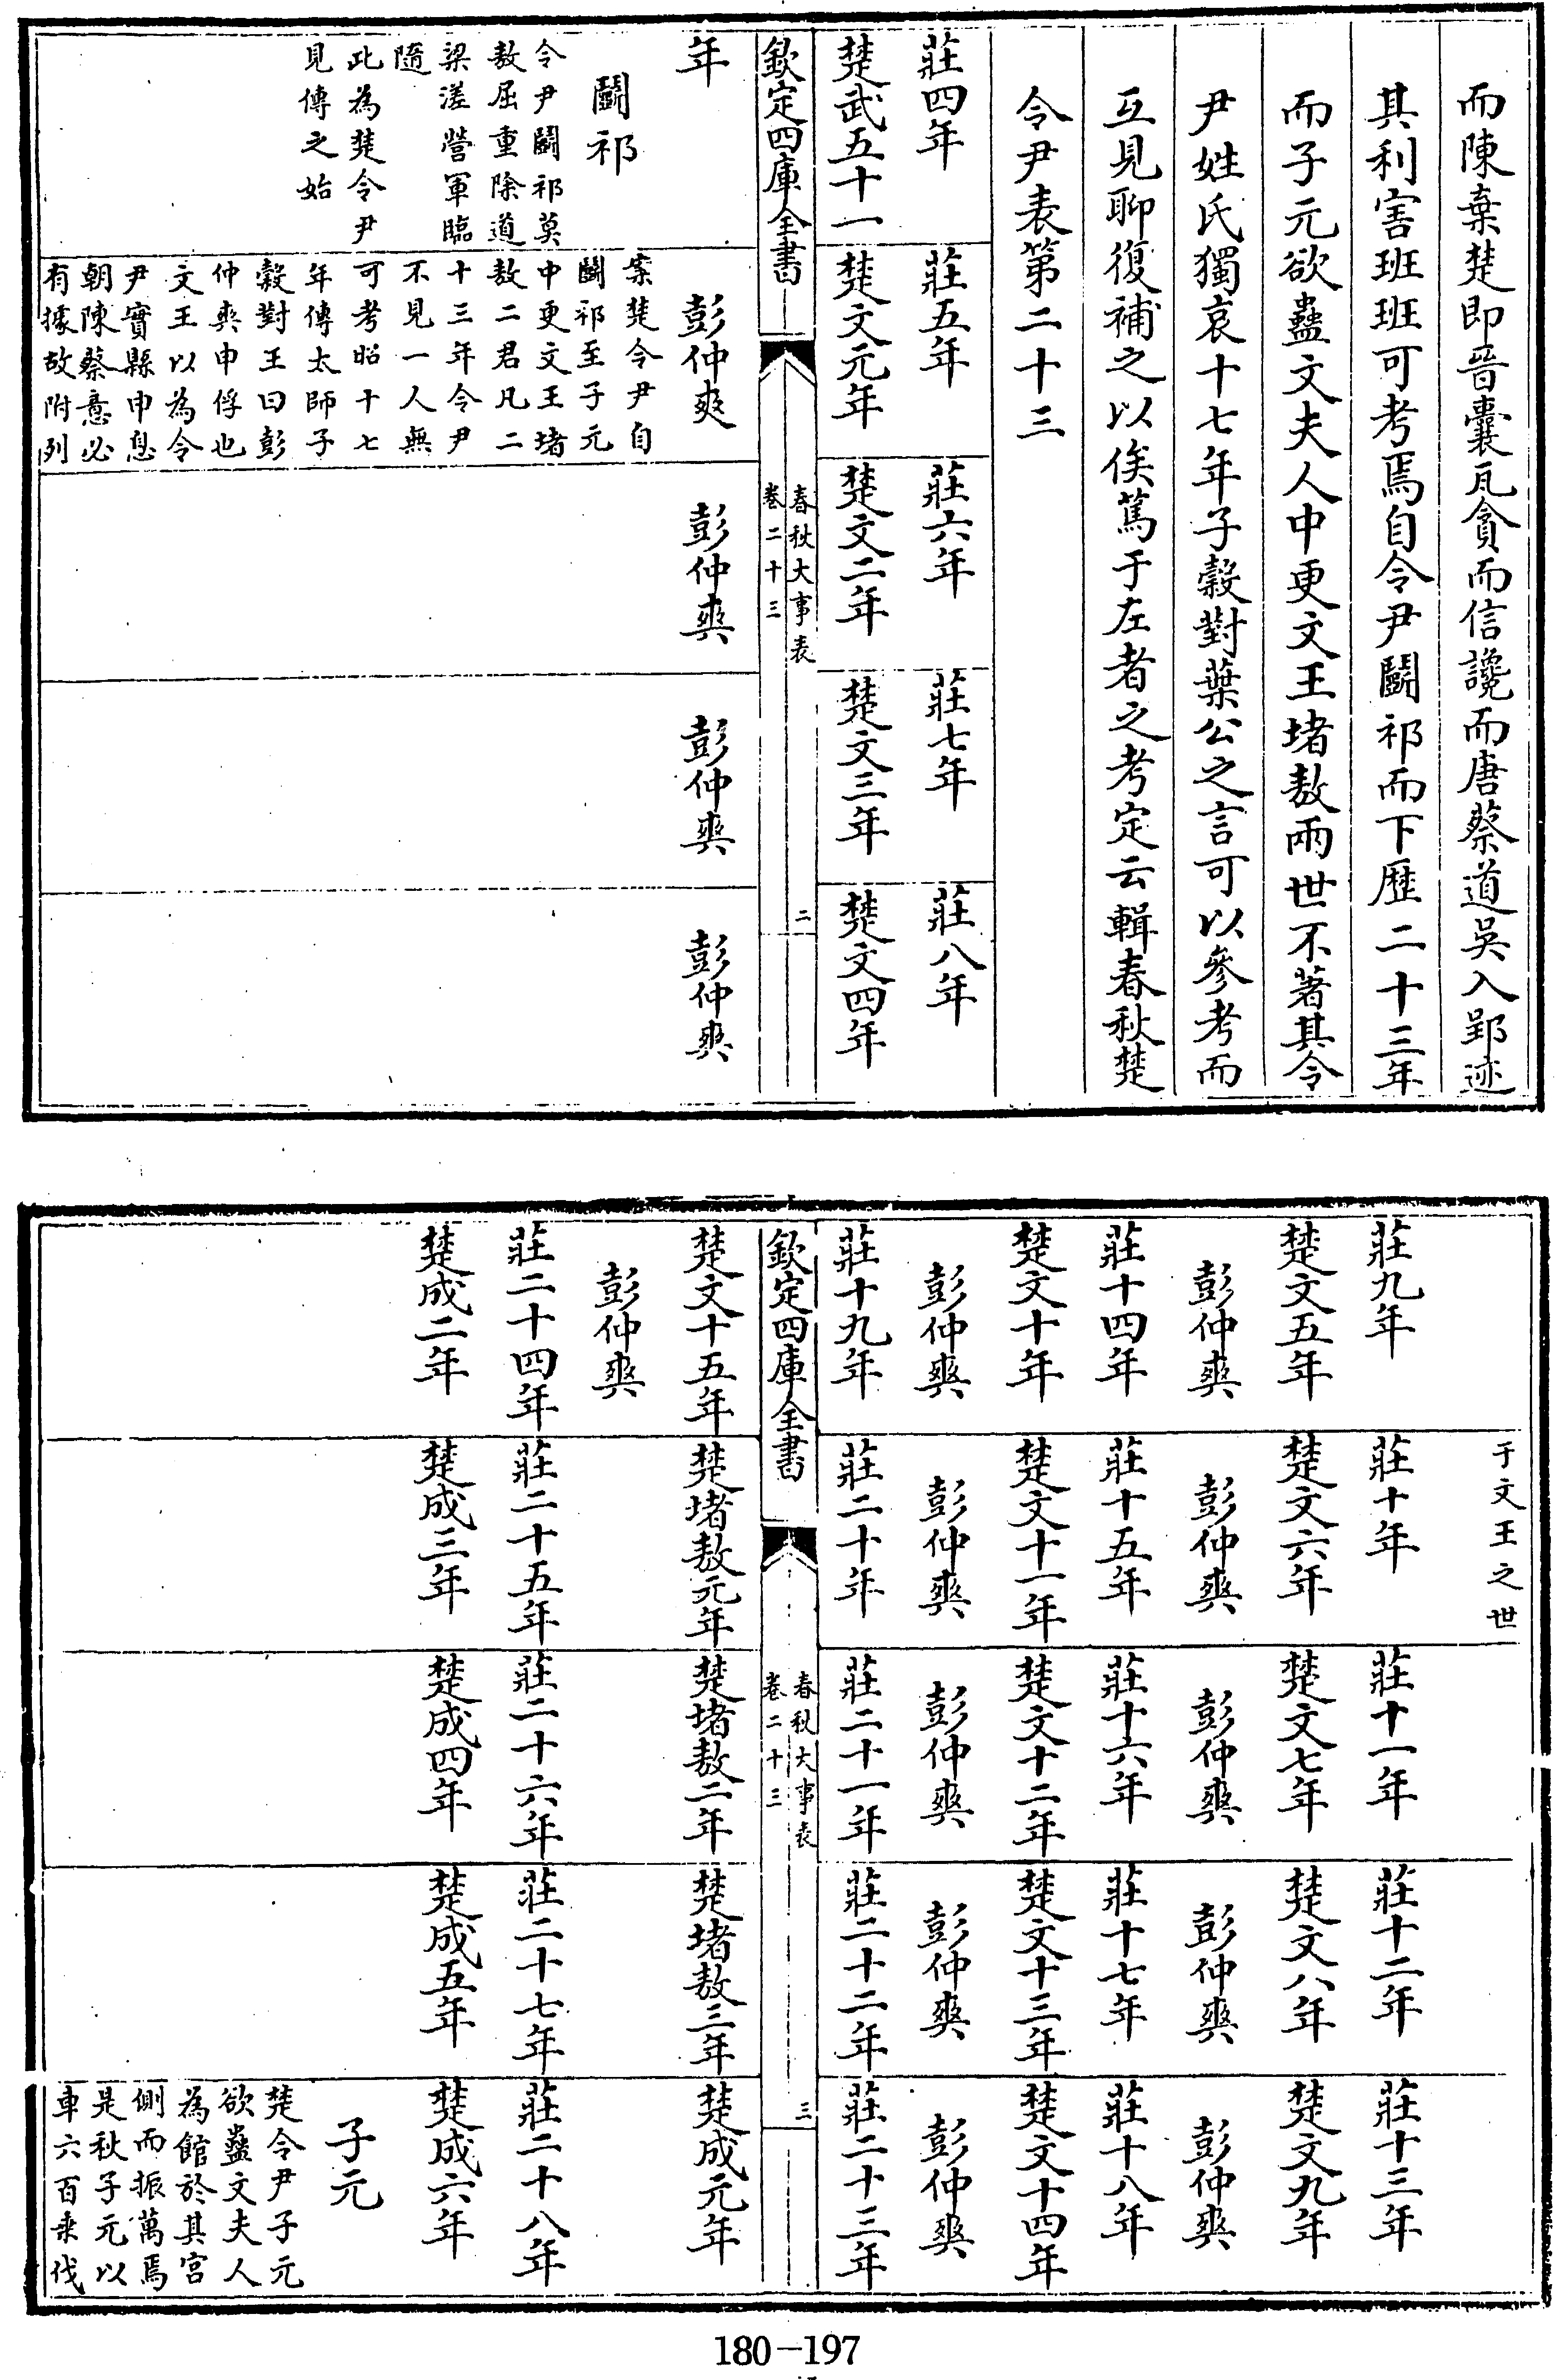 而陳棄楚即晉囊瓦貪而信讒而唐蔡道吳入郢迹
其利害班班可考焉自令尹鬬祁而下歷二十三年
而子元欲蠱文夫人中更文王堵敖兩世不著其令
尹姓氏獨哀十七年子穀對葉公之言可以參考而
互見聊復補之以俟篤于左者之考定云輯春秋楚
令尹表第二十三
莊四年
莊五年
莊六年
莊七年
莊八年
楚武五十一
楚文元年
楚文二年
楚文三年
楚文四年
欽定四庫全書
春秋大事表
卷二十三
二
年
鬬祁
令尹鬬祁莫
敖屈重除道
梁溠營軍臨
隨
此為楚令尹
見傳之始
彭仲爽
案楚令尹自
鬬祁至子元
中更文王堵
敖二君凡二
十三年令尹
不見一人無
可考昭十七
年傳太師子
穀對王曰彭
仲爽申俘也
文王以為令
尹實縣申息
朝陳蔡意必
有據故附列
彭仲爽
彭仲爽
彭仲爽
于文王之世
莊九年
莊十年
莊十一年
莊十二年
莊十三年
楚文五年
楚文六年
楚文七年
楚文八年
楚文九年
彭仲爽
彭仲爽
彭仲爽
彭仲爽
彭仲爽
莊十四年
莊十五年
莊十六年
莊十七年
莊十八年
楚文十年
楚文十一年
楚文十二年
楚文十三年
楚文十四年
彭仲爽
彭仲爽
彭仲爽
彭仲爽
彭仲爽
莊十九年
莊二十年
莊二十一年
莊二十二年
莊二十三年
欽定四庫全書
春秋大事表
卷二十三
三
楚文十五年
楚堵敖元年
楚堵敖二年
楚堵敖三年
楚成元年
彭仲爽
莊二十四年
莊二十五年
莊二十六年
莊二十七年
莊二十八年
楚成二年
楚成三年
楚成四年
楚成五年
楚成六年
子元
楚令尹子元
欲蠱文夫人
為館於其宮
側而振萬焉
是秋子元以
車六百乘伐
180-197